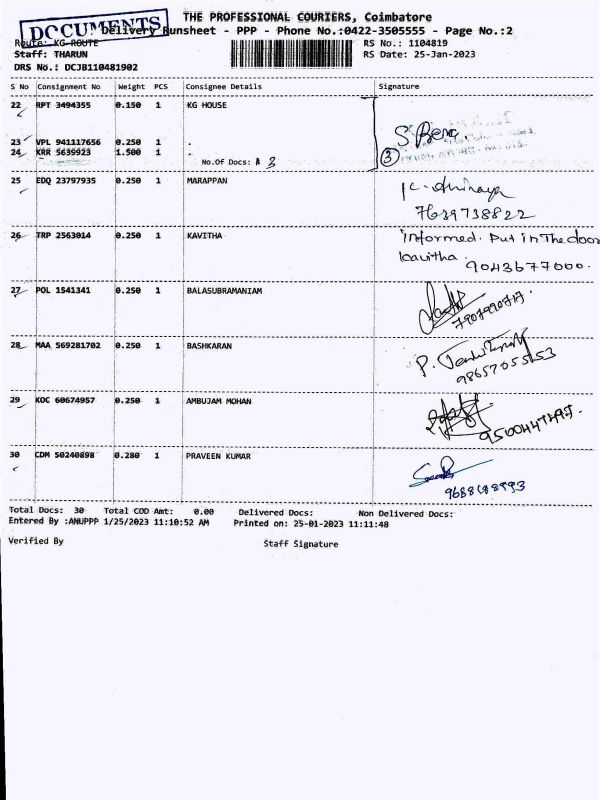 THE PROFESSIONAL COURIERS, Coimbatore
DOCUMENTS
Delivery Runsheet - PPP - Phone No.:0422-3505555 - Page No.:2
Route: KG-ROUTE RS No.: 1104819
Staff: THARUN RS Date: 25-Jan-2023
DRS No.: DCJB110481902
S No Consignment No Weight PCS Consignee Details Signature
22 RPT 3494355 0.150 1 KG HOUSE
23 VPL 941117656 0.250 1 .
24 KRR 5639923 1.500 1 .
3
No.Of Docs: 3
25 EDQ 23797935 0.250 1 MARAPPAN
7639738822
26 TRP 2563014 0.250 1 KAVITHA informed. Put in The door
kavitha.
9043677000.
27 POL 1541341 0.250 1 BALASUBRAMANIAM
28 MAA 569281702 0.250 1 BASHKARAN
98657055553
29 KOC 60674957 0.250 1 AMBUJAM MOHAN
30 CDM 50240898 0.280 1 PRAVEEN KUMAR
Total Docs: 30 Total COD Amt: 0.00 Delivered Docs: Non Delivered Docs:
Entered By :ANUPPP 1/25/2023 11:10:52 AM Printed on: 25-01-2023 11:11:48
Verified By Staff Signature